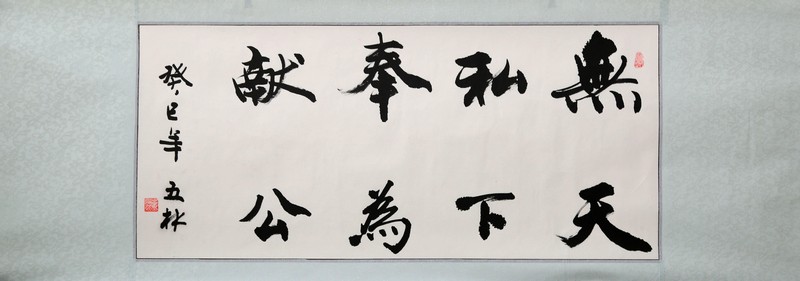 無私奉献
天下為公
癸巳年 五林